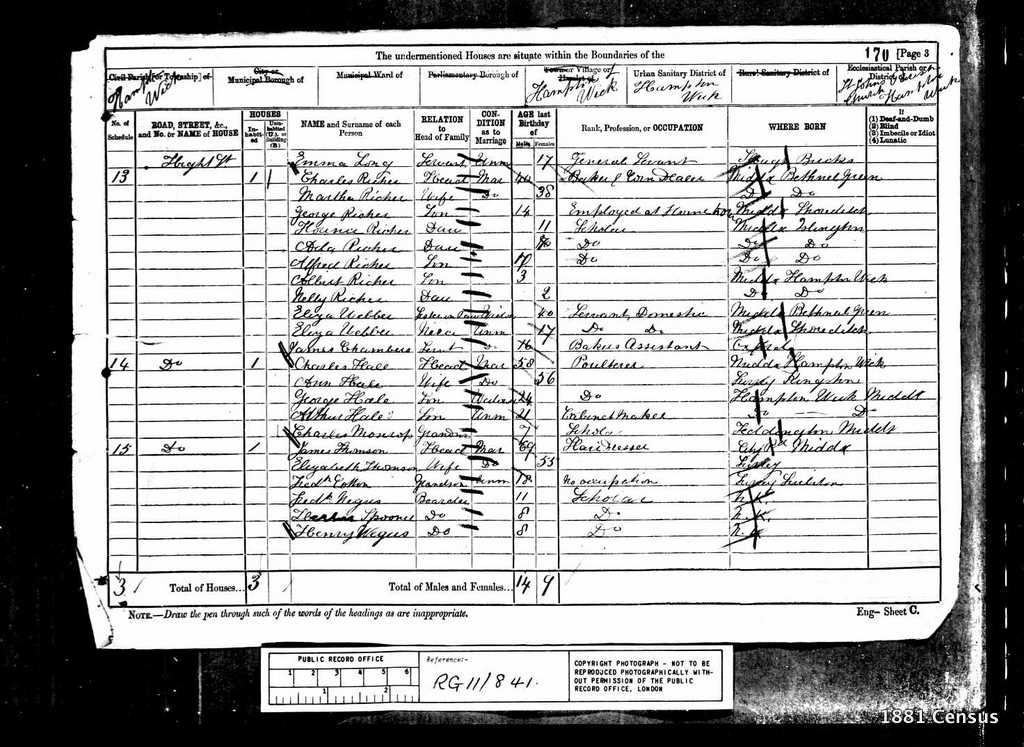 The undermentioned Houses are situate within the Boundaries of the 170 [Page 3
Civil Parish [or Township] of City or Municipal Borough of Municipal Ward of Parliamentary Borough of Town or Village or Hamlet of Urban Sanitary District of Rural Sanitary District of Ecclesiastical Parish or District of
Hampton Wick Hampton Wick Hampton Wick St Johns Church Hampton Wick
No. of Schedule ROAD, STREET, &c., and No. or NAME of HOUSE HOUSES Inhabited Uninhabited (U.), or Building (B.) NAME and Surname of each Person RELATION to Head of Family CONDITION as to Marriage AGE last Birthday of Males Females Rank, Profession, or OCCUPATION WHERE BORN If (1) Deaf-and-Dumb (2) Blind (3) Imbecile or Idiot (4) Lunatic
Hight St Emma Long Servant Unm 17 General Servant Bucks
13 1 Charles Richer Head Mar 40 Baker & Corn Dealer Middx Bethnel Green
Martha Richer Wife Do 38 Do Do
George Richer Son 14 Employed at Home Middx Shoreditch
Florence Richer Dau 11 Scholar Middx Islington
Ada Richer Dau Do Do Do
Alfred Richer Son Do Do Do
Albert Richer Son 3 Middx Hampton Wick
Nelly Richer Dau 2 Do Do
Eliza Webber Widow 40 Servant, Domestic Middx Bethnel Green
Eliza Webber Niece Unm 17 Do Do Middx Shoreditch
James Chambers Servt 16 Bakers Assistant Oxford
14 Do 1 Charles Hale Head Mar 58 Poulterer Middx Hampton Wick
Ann Hale Wife Do 56 Surry Kingston
George Hale Son 24 Do Hampton Wick Middx
Arthur Hale Son Unm 21 Cabinet Maker Do Do
Charles Grandson 7 Scholar Teddington Middx
15 Do 1 James Thomson Head Mar 69 Hair Dresser City Middx
Elizabeth Thomson Wife Do 55 Surry
Fredk Cotton Grandson Unm 18 No occupation Surry
Fredk Negus Boarder 11 Scholar N.K.
Spooner Do 8 Do N.K.
Henry Negus Do 8 Do N.K.
3 Total of Houses... 3 Total of Males and Females... 14 9
NOTE.—Draw the pen through such of the words of the headings as are inappropriate.
Eng– Sheet C.
PUBLIC RECORD OFFICE
1 2 3 4 5 6
1 2
References:-
RG11/841.
COPYRIGHT PHOTOGRAPH - NOT TO BE REPRODUCED PHOTOGRAPHICALLY WITHOUT PERMISSION OF THE PUBLIC RECORD OFFICE, LONDON
1881 Census